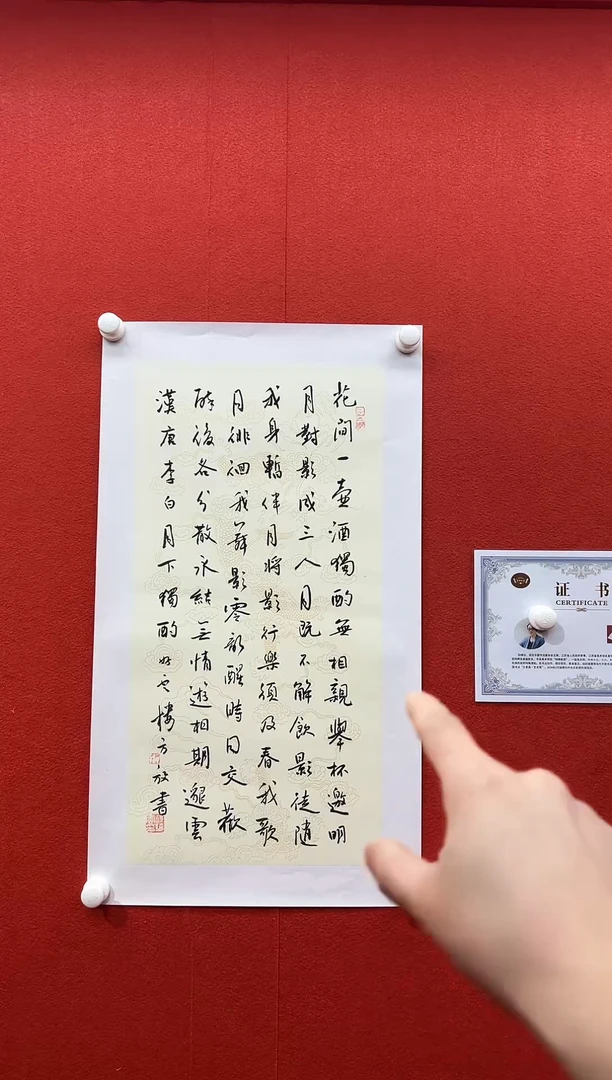 花間一壺酒獨酌無相親舉杯邀明
月對影成三人月既不解飲影徒隨
我身暫伴月將影行樂須及春我歌
月徘徊我舞影零亂醒時同交歡
醉後各分散永結無情遊相期邈雲
漢唐李白月下獨酌 樓方放書
证书
CERTIFICATE